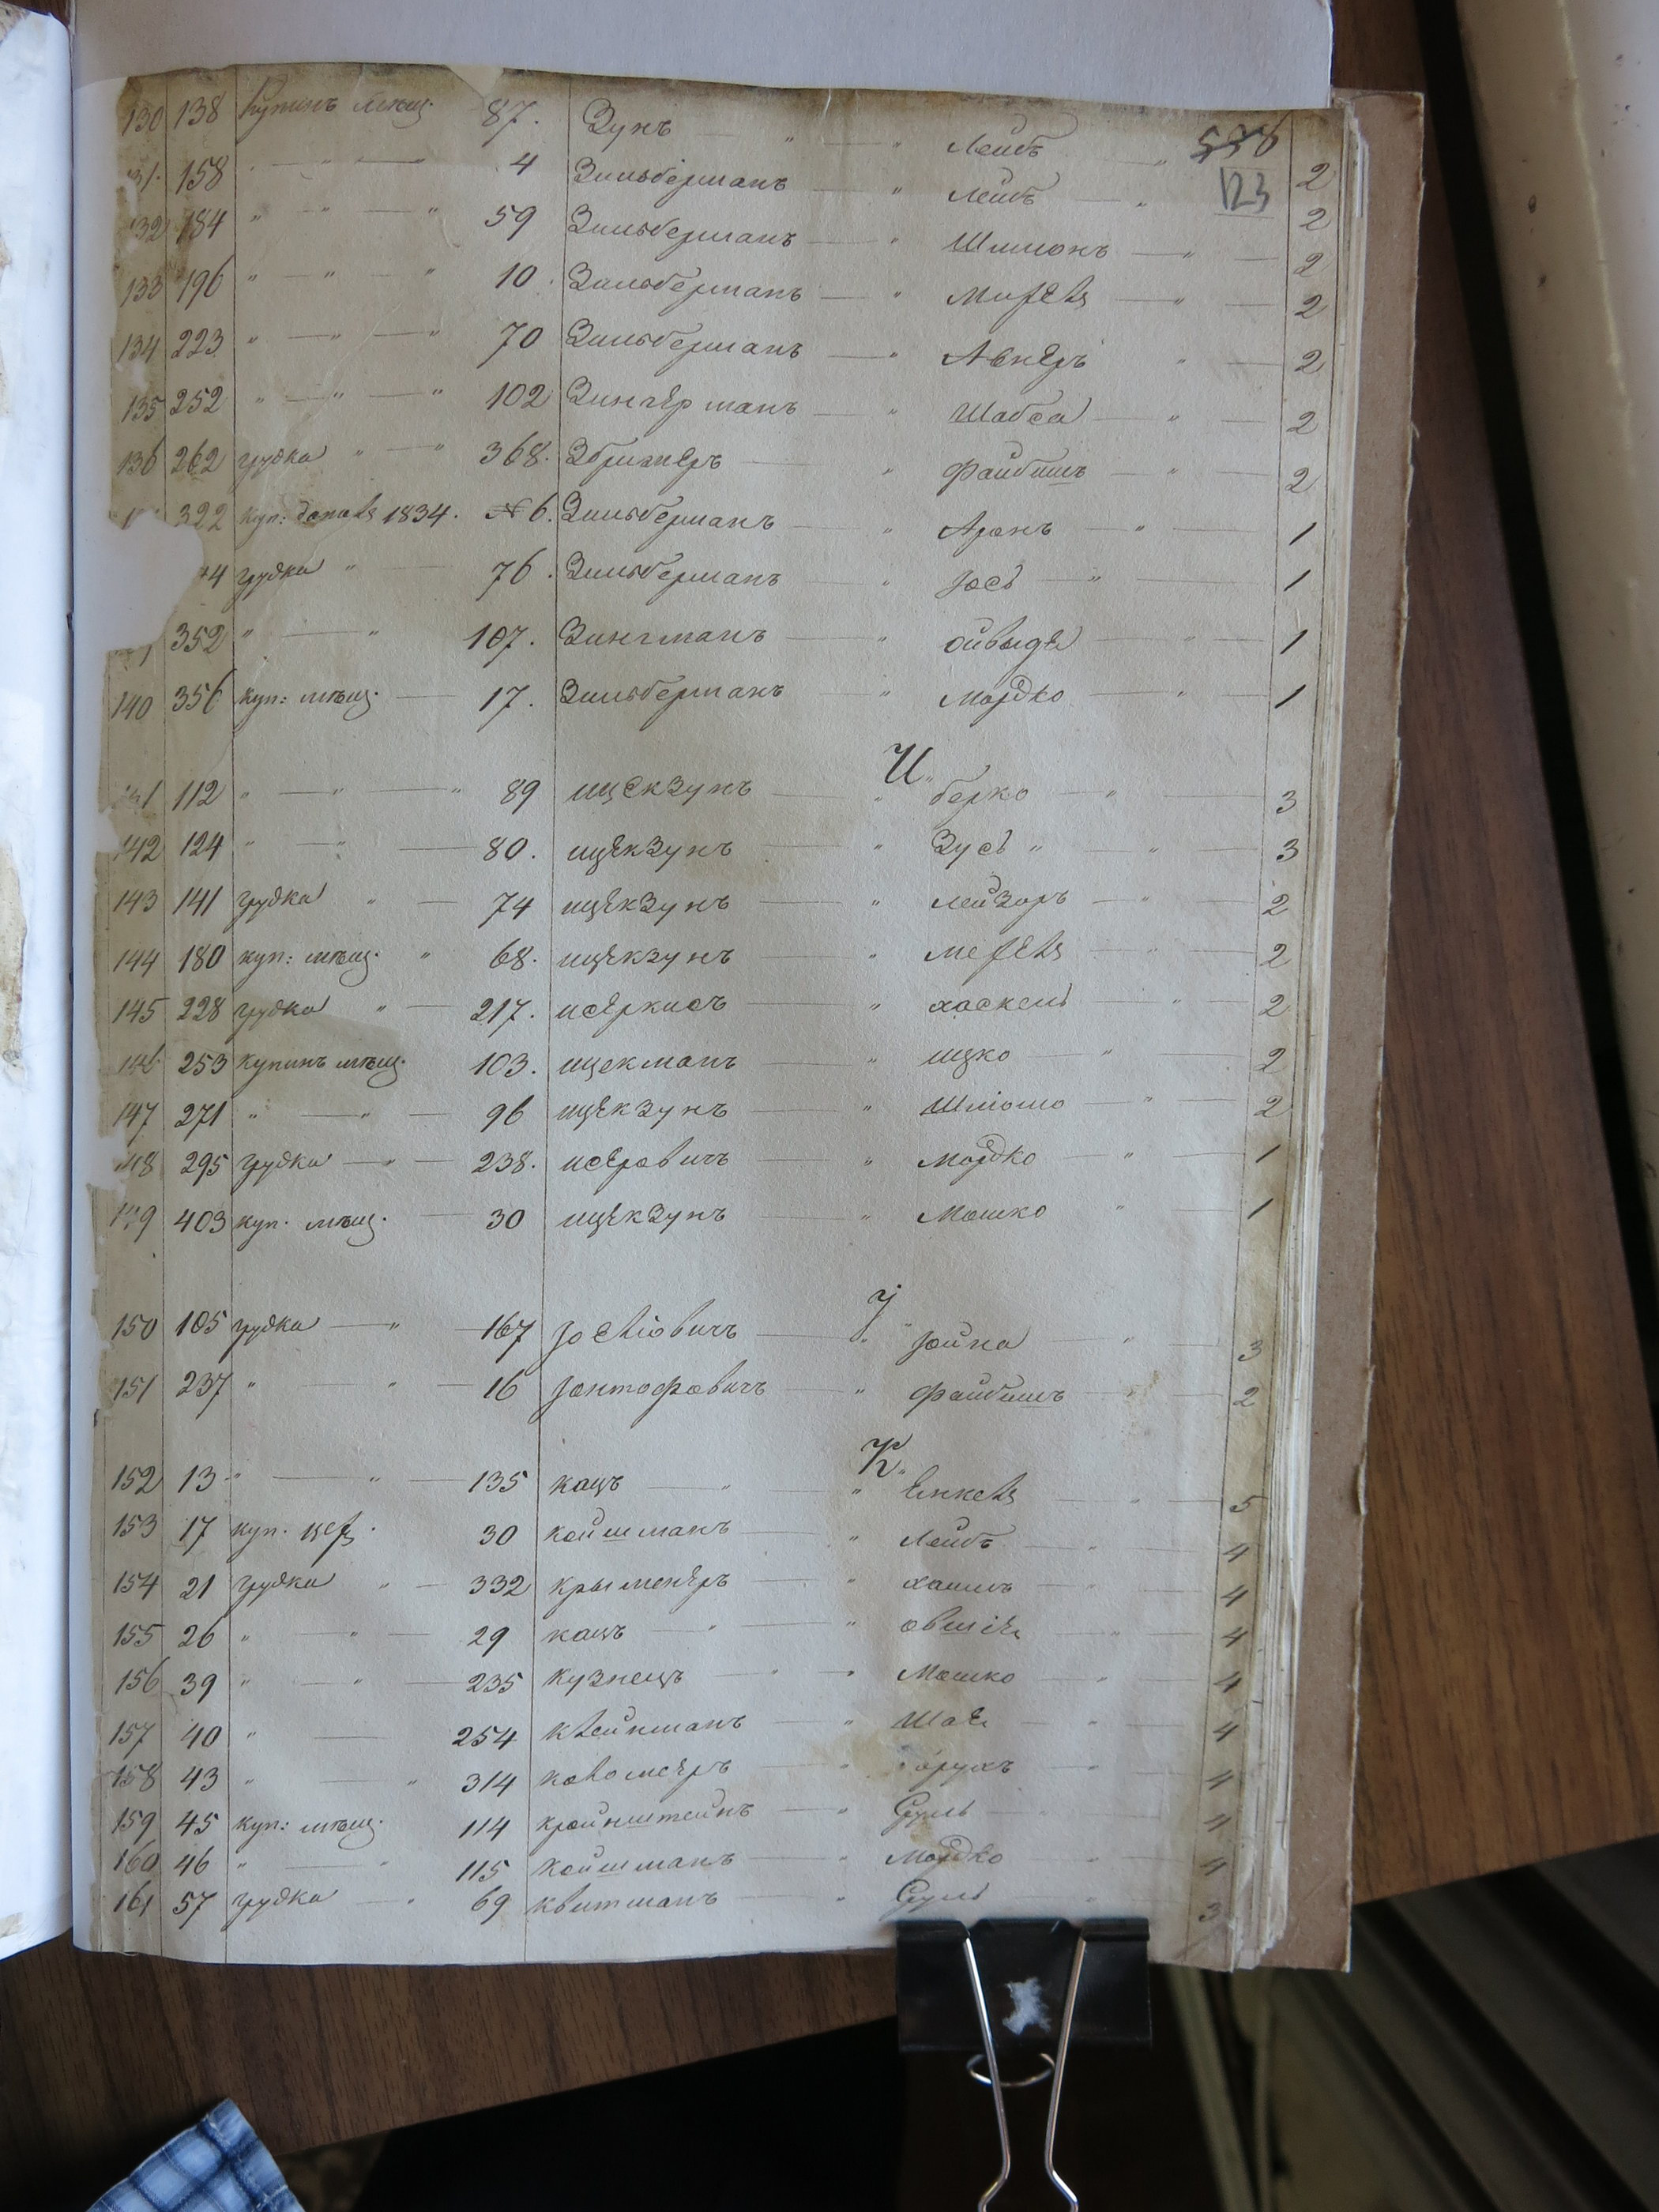 130 138 Купинъ мѣщ. 87. Зунъ — " — " Лейбъ " 536 2
31. 158 " — " — " 4 Зильберманъ — " Лейбъ — " 123 2
132 184 " — " — " 59 Зильберманъ — " Шимонъ — " — 2
133 196 " — " — " 10. Зильберманъ — " — " — 2
134 223 " — " — " 70 Зильберманъ — " Авнеръ " — 2
135 252 " — " — " 102 Зингерманъ — " Шабса — " — 2
136 262 грудка " — " 368. Збрижеръ — " Файбишъ — " — 2
322 куп: 1834. № 6. Зильберманъ — " Аронъ — " — 1
4 грудка " — 76. Зильберманъ — " Јось — " — 1
352 " — " 107. Зингманъ — " — " — 1
140 356 куп: мѣщ. — 17. Зильберманъ " Мордко — " — 1
И.
1 112 " — " — " 89 ицекзунъ — " берко — " — 3
142 124 " — " — 80. ицекзунъ — " Зусь " " — 3
143 141 грудка " — 74 ицекзунъ — " лейзоръ — " — 2
144 180 куп: мѣщ. " 68. ицекзунъ — " — " — 2
145 228 грудка " — 217. исеркисъ — " хаскель " — 2
146 253 купинъ мѣщ. 103. ицекманъ " ицко — " — 2
147 271 " — " — 96 ицекзунъ — " Шліомо — " — 2
148 295 грудка — " — 238. исеровичъ — " Мордко — " — 1
149 403 куп. мѣщ. — 30 ицекзунъ — " Мошко " — 1
J
150 105 грудка — " — 167 Јосліовичъ — " Јойна " — 3
151 237 " " — 16 Јонтофовичъ — " Файбишъ " 2
К.
152 13 " — " — 135 кацъ — " — " Енкель — " — 5
153 17 куп. 30 койшманъ — " Лейбъ — " — 4
154 21 грудка " — 332 крыменеръ — " хаимъ — " 4
155 26 " — " — 29 кацъ — " — " овшіе " — 4
156 39 " — " — 235 кузнецъ — " — " Мошко " — 4
157 40 " — 254 клейнманъ — " Шае " — 4
158 43 " — " 314 коломееръ — " борухъ " — 4
159 45 куп: мѣщ. 114 кройнштейнъ — " Сруль — 4
160 46 " — " 115 койшманъ — " Мордко " — 4
161 57 грудка — " 69 квитманъ — " Сруль " 3